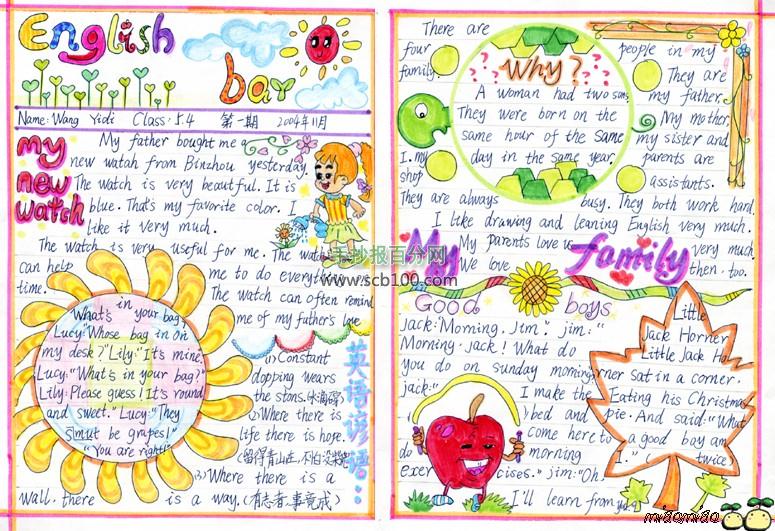 English
bar
Name: Wang Yidi Class: 5.4 第一期 2004年11月
my
new
watch
My father bought me a
new watah from Binzhou yesterday.
The watch is very beautiful. It is
blue. That's my favorite color. I
like it very much.
The watch is very useful for me. The watch
can help me to do everyt
time. The watch can often remind
me of my father's love
What's in your bag?
Lucy: "Whose bag in on
my desk?" Lily: "It's mine.
Lucy: "What's in your bag?"
Lily: Please guess! It's round
and sweet." Lucy: "They
must be grapes!"
"You are right!"
英语谚语…
(1) Constant
dopping wears
the stons. (水滴石穿)
(2) Where there is
life there is hope.
(留得青山在,不怕没柴烧)
(3) Where there is a
wall, there is a way. (有志者,事竟成)
There are
four people in my
family. They are
my father.
My mother.
I. my my sister and
shop parents are
assistants.
They are always busy. They both work hard.
I like drawing and leaning English very much.
My parents love us very much
We love then, too.
Why?
A woman had two sons,
They were born on the
same hour of the same
day in the same year.
My family
Good boys
jack: "Morning. Jim." jim: "
Morning. jack! What do
you do on sunday morning
jack: " I make the
bed and
come here to
do morning
exer cises." jim: "Oh.
I'll learn from you
Little
Jack Horner
Little Jack Ho
rner sat in a corner.
Eating his Christmas
pie. And said: "What
a good boy am
I." ( twice)
手抄报百分网
www.scb100.com
miaomiao